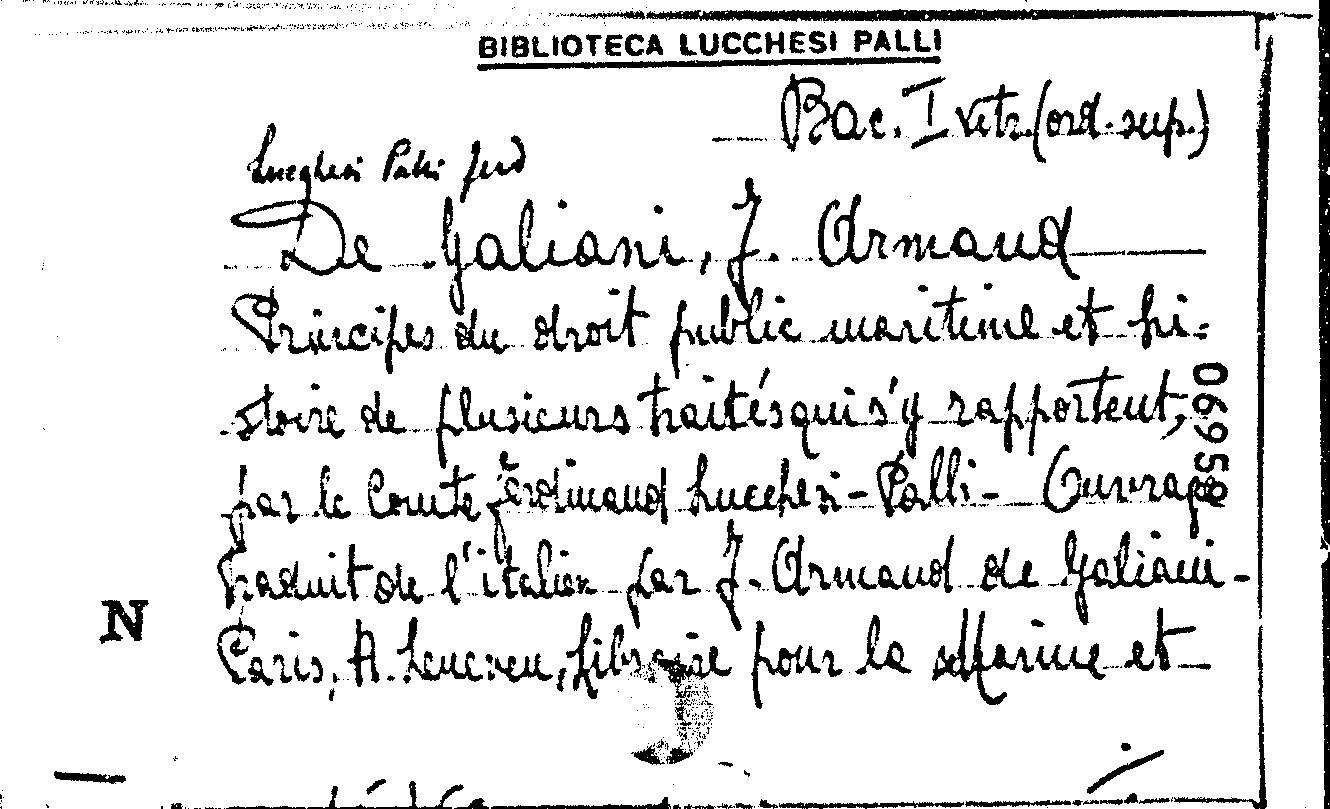 BIBLIOTECA LUCCHESI PALLI
Bac. I vetr. (ord. sup.)
Lucchesi Palli Ferd
De Galiani, J. Armand
Principes du droit public maritime et hi-
stoire de plusieurs traités qui s'y rapportent,
par le Comte Ferdinand Lucchesi-Palli - Ouvrage
traduit de l'italien par J. Armand de Galiani -
Paris, A. Leneveu, Libraire pour la Marine et
N